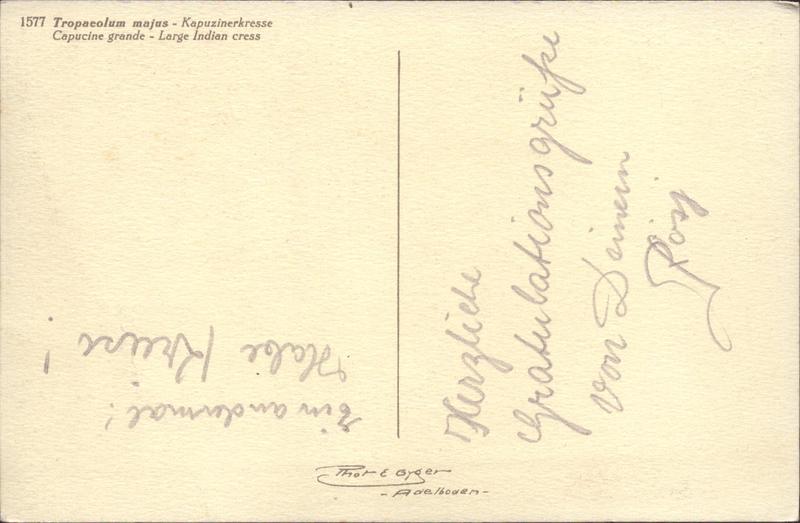 1577 Tropaeolum majus - Kapuzinerkresse
Capucine grande - Large Indian cress
Herzliche
Gratulationsgrüße
von Deinem
Ein andermal!
Habe
Phot E Gyger
- Adelboden -